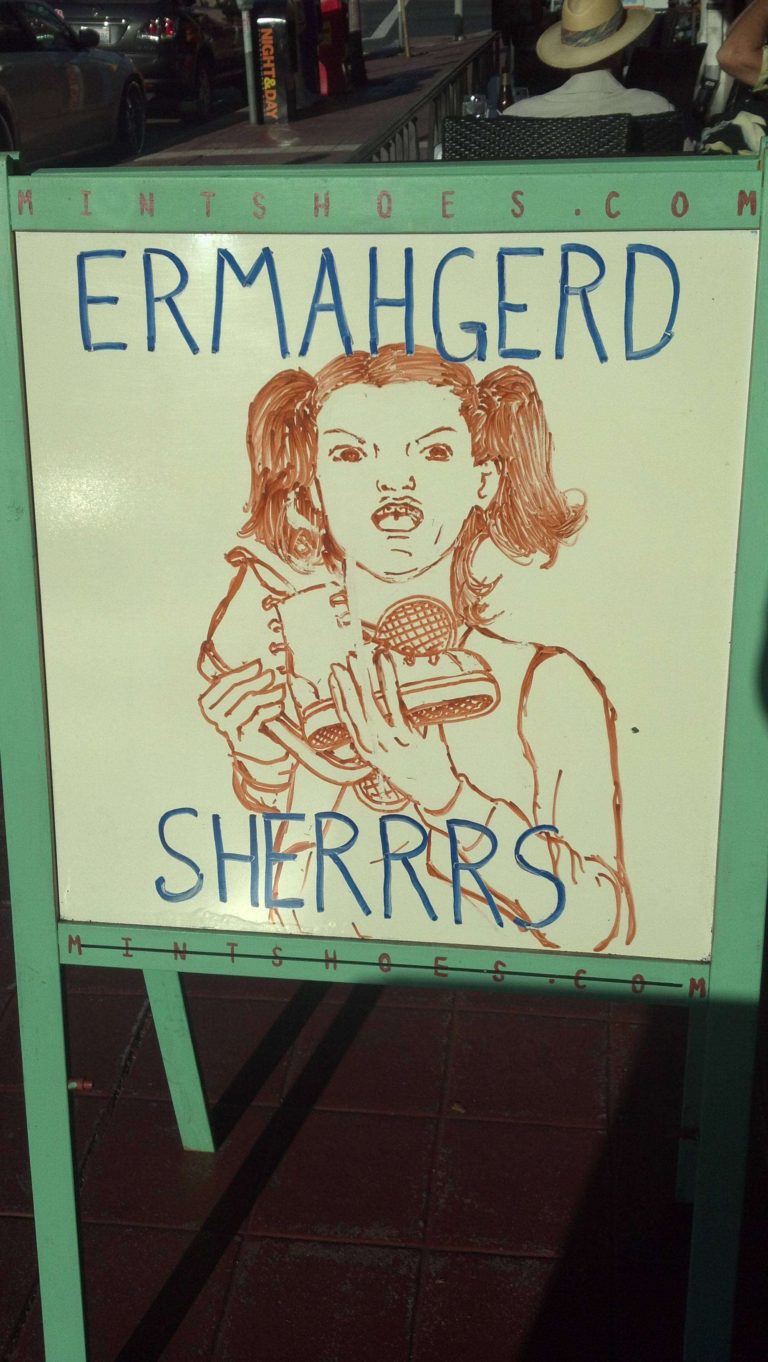 NIGHT&DAY
MINTSHOES.COM
ERMAHGERD
SHERRRS
MINTSHOES.COM